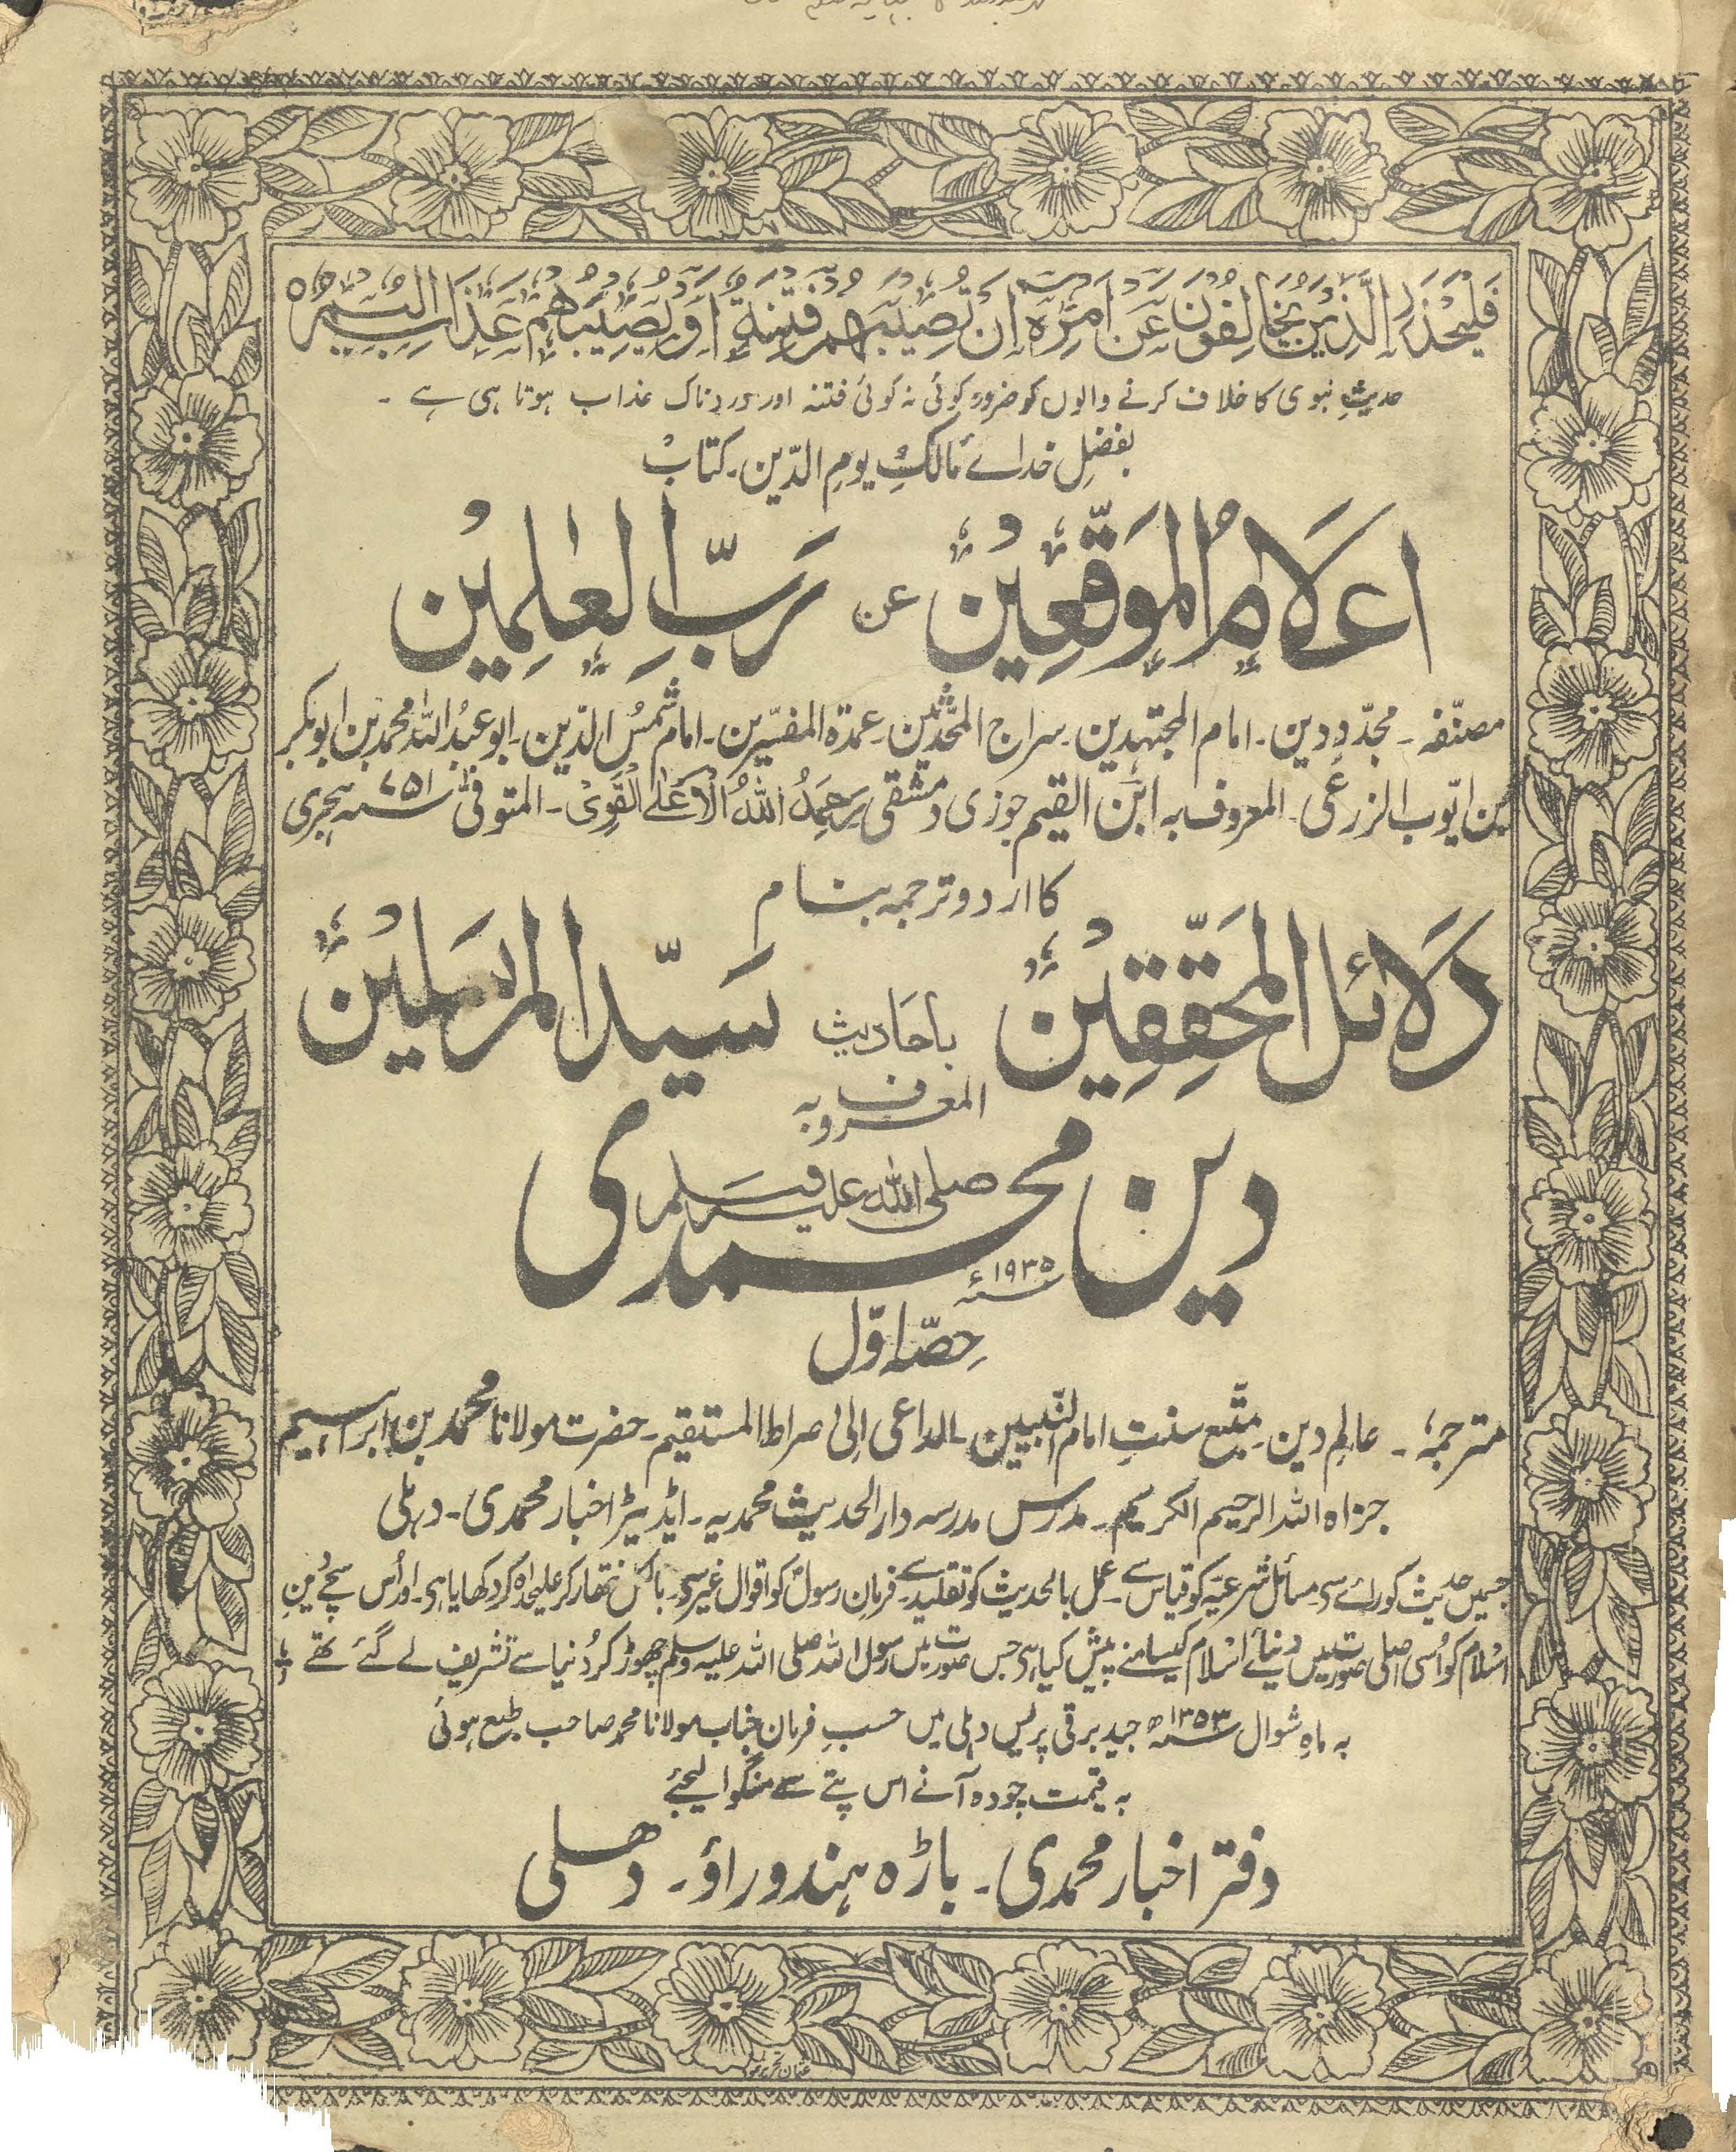 فَلْيَحْذَرِ الَّذِيْنَ يُخَالِفُوْنَ عَنْ اَمْرِهٖٓ اَنْ تُصِيْبَهُمْ فِتْنَةٌ اَوْ يُصِيْبَهُمْ عَذَابٌ اَلِيْمٌ ۝
حدیثِ نبوی کا خلاف کرنے والوں کو ضرور کوئی نہ کوئی فتنہ اور دردناک عذاب ہوتا ہی ہے ۔
بفضلِ خدائے مالکِ یومِ الدّین۔ کتاب
اعلَامُ الموَقّعِیْن عن رَبِّ العٰلمِیْن
مصنّفہ ۔ مجدّدِ دین۔ امام المجتہدین۔ سراج المحّدثین۔ عمدۃ المفسّرین۔ امام شمسُ الدّین۔ ابو عبدُ اللہ محمد بن ابوبکر
بن ایّوب الزرعی۔ المعروف بہ ابن القیم جوزی دمشقی رَحِمَہُ اللہُ الْاَعْلَی الْقَوِیْ۔ المتوفیٰ ۷۵۱؁ ہجری
کا اردو ترجمہ بنام
دَلائل المحَقّقِیْن باحَادیث سَیّد المرسَلیْن
المعروف بہ
دین محمدی صلی اللہ علیہ وسلم
۱۹۳۵؁ء
حِصّہ اوّل
مترجمہ ۔ عالمِ دین۔ متّبع سنتِ امام النّبیین۔ الداعی الیٰ صراط المستقیم۔ حضرت مولانا محمد بن ابراہیم
جزاہ اللہ الرحیم الکریم۔ مدرس مدرسہ دار الحدیث محمدیہ۔ ایڈیٹر اخبار محمدی۔ دہلی
جسمیں حدیث کو رائے سے مسائل شرعیّہ کو قیاس سے۔ عمل بالحدیث کو تقلید سے۔ فرمانِ رسول کو اقوال غیر سے۔ بالکل نتھار کر علیحدہ کر دکھایا ہی۔ اور اُس سچے دین
اسلام کو اُسی اصلی صورت میں دنیائے اسلام کیسامنے پیش کیا ہی جس صورت میں رسول اللہ صلی اللہ علیہ وسلم چھوڑ کر دُنیا سے تشریف لے گئے تھے
بہ ماہِ شوال ۱۳۵۳؁ھ جید برقی پریس دہلی میں حسبِ فرمان جناب مولانا محمد صاحب طبع ہوئی
بہ قیمت چودہ آنے اس پتے سے منگوا لیجئے
دفتر اخبار محمدی۔ باڑہ ہندوراؤ۔ دھلی